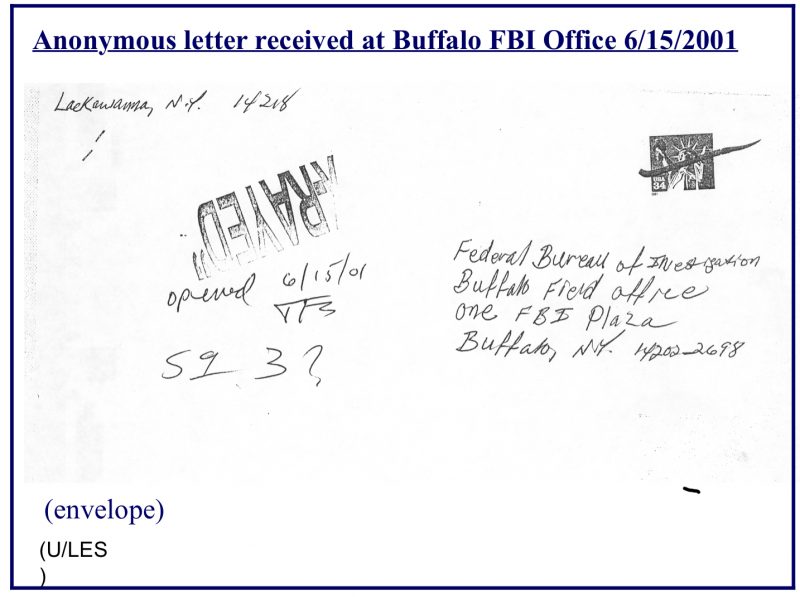 Anonymous letter received at Buffalo FBI Office 6/15/2001
Lackawanna, N.Y. 14218
USA
34
"XRAYED"
opened 6/15/01
Federal Bureau of INvestigation
Buffalo Field office
one FBI Plaza
Buffalo, NY. 14202-2698
(envelope)
(U/LES
)